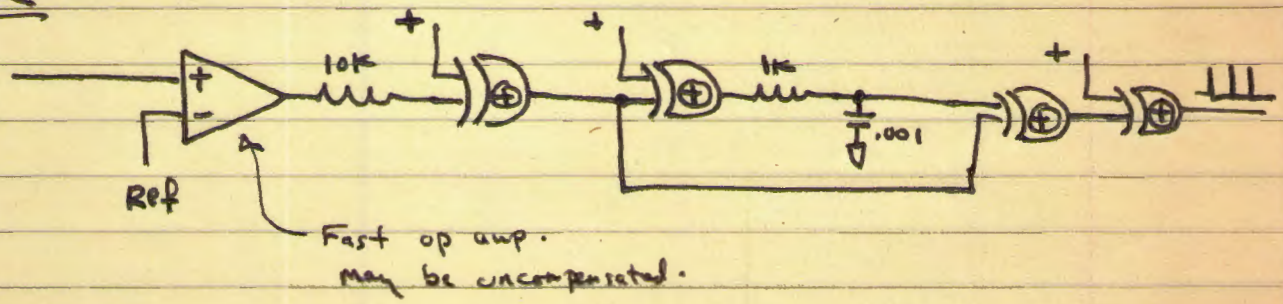 +
+
+
10K
1K
+
-
.001
Ref
Fast op amp.
may be uncompensated.